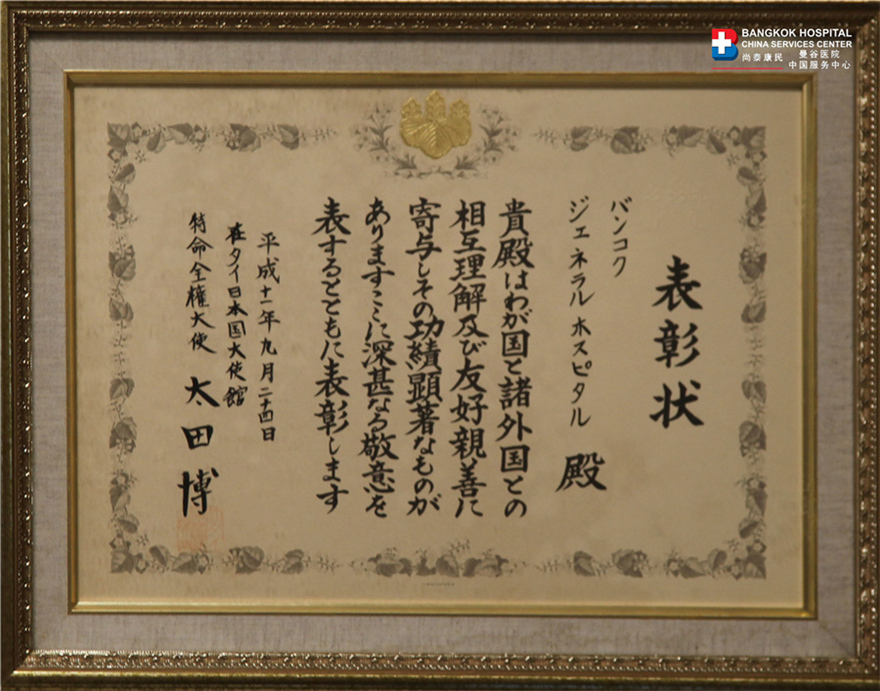 BANGKOK HOSPITAL
CHINA SERVICES CENTER
尚泰康民
曼谷医院
中国服务中心
表彰状
バンコク
ジェネラルホスピタル 殿
貴殿はわが国と諸外国との
相互理解及び友好親善に
寄与しその功績顕著なものが
ありますここに深甚なる敬意を
表するとともに表彰します
平成十一年九月二十四日
在タイ日本国大使館
特命全権大使 太田博